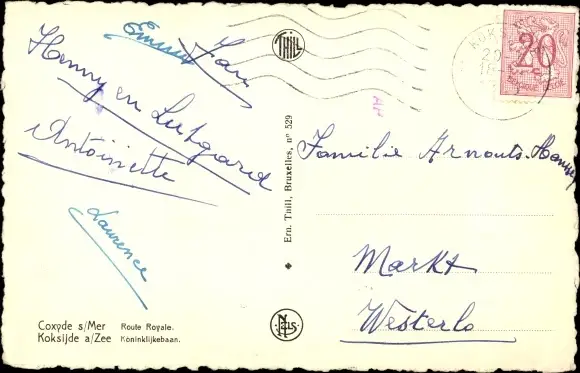 Emma
Jan
Henny en Lutgard
Antoinette
Laurence
Coxyde s/Mer Route Royale.
Koksijde a/Zee Koninklijkebaan.
THILL
Ern. Thill, Bruxelles, n° 529
NELS
Ar
20
Familie Arnouts-Hanny
Markt
Westerlo